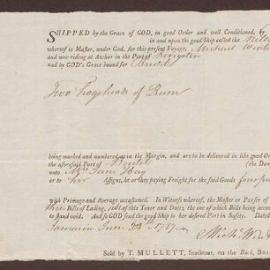 SHIPPED by the Grace of GOD, in good Order and well Conditioned, by
in and upon the good Ship called the
whereof is Master, under God, for this present Voyage, Michael
and now riding at Anchor in the Port of Kingston
and by GOD's Grace bound for Bristol
Two Hogsheads of Rum
being marked and numbered as in the Margin, and are to be delivered in like good Order
the aforesaid Port of Bristol (the Dan
unto
or to his Assigns, he or they paying Freight for the said Goods
with Primage and Average accustomed. In Witness whereof, the Master or Purser of
three Bills of Lading, all of this Tenor and Date; the one of which Bills being acco
to stand void. And so GOD send the good Ship to her desired Port in Safety. Dated
Jamaica June
Sold by T. MULLETT, Stationer, on the Back, Bri